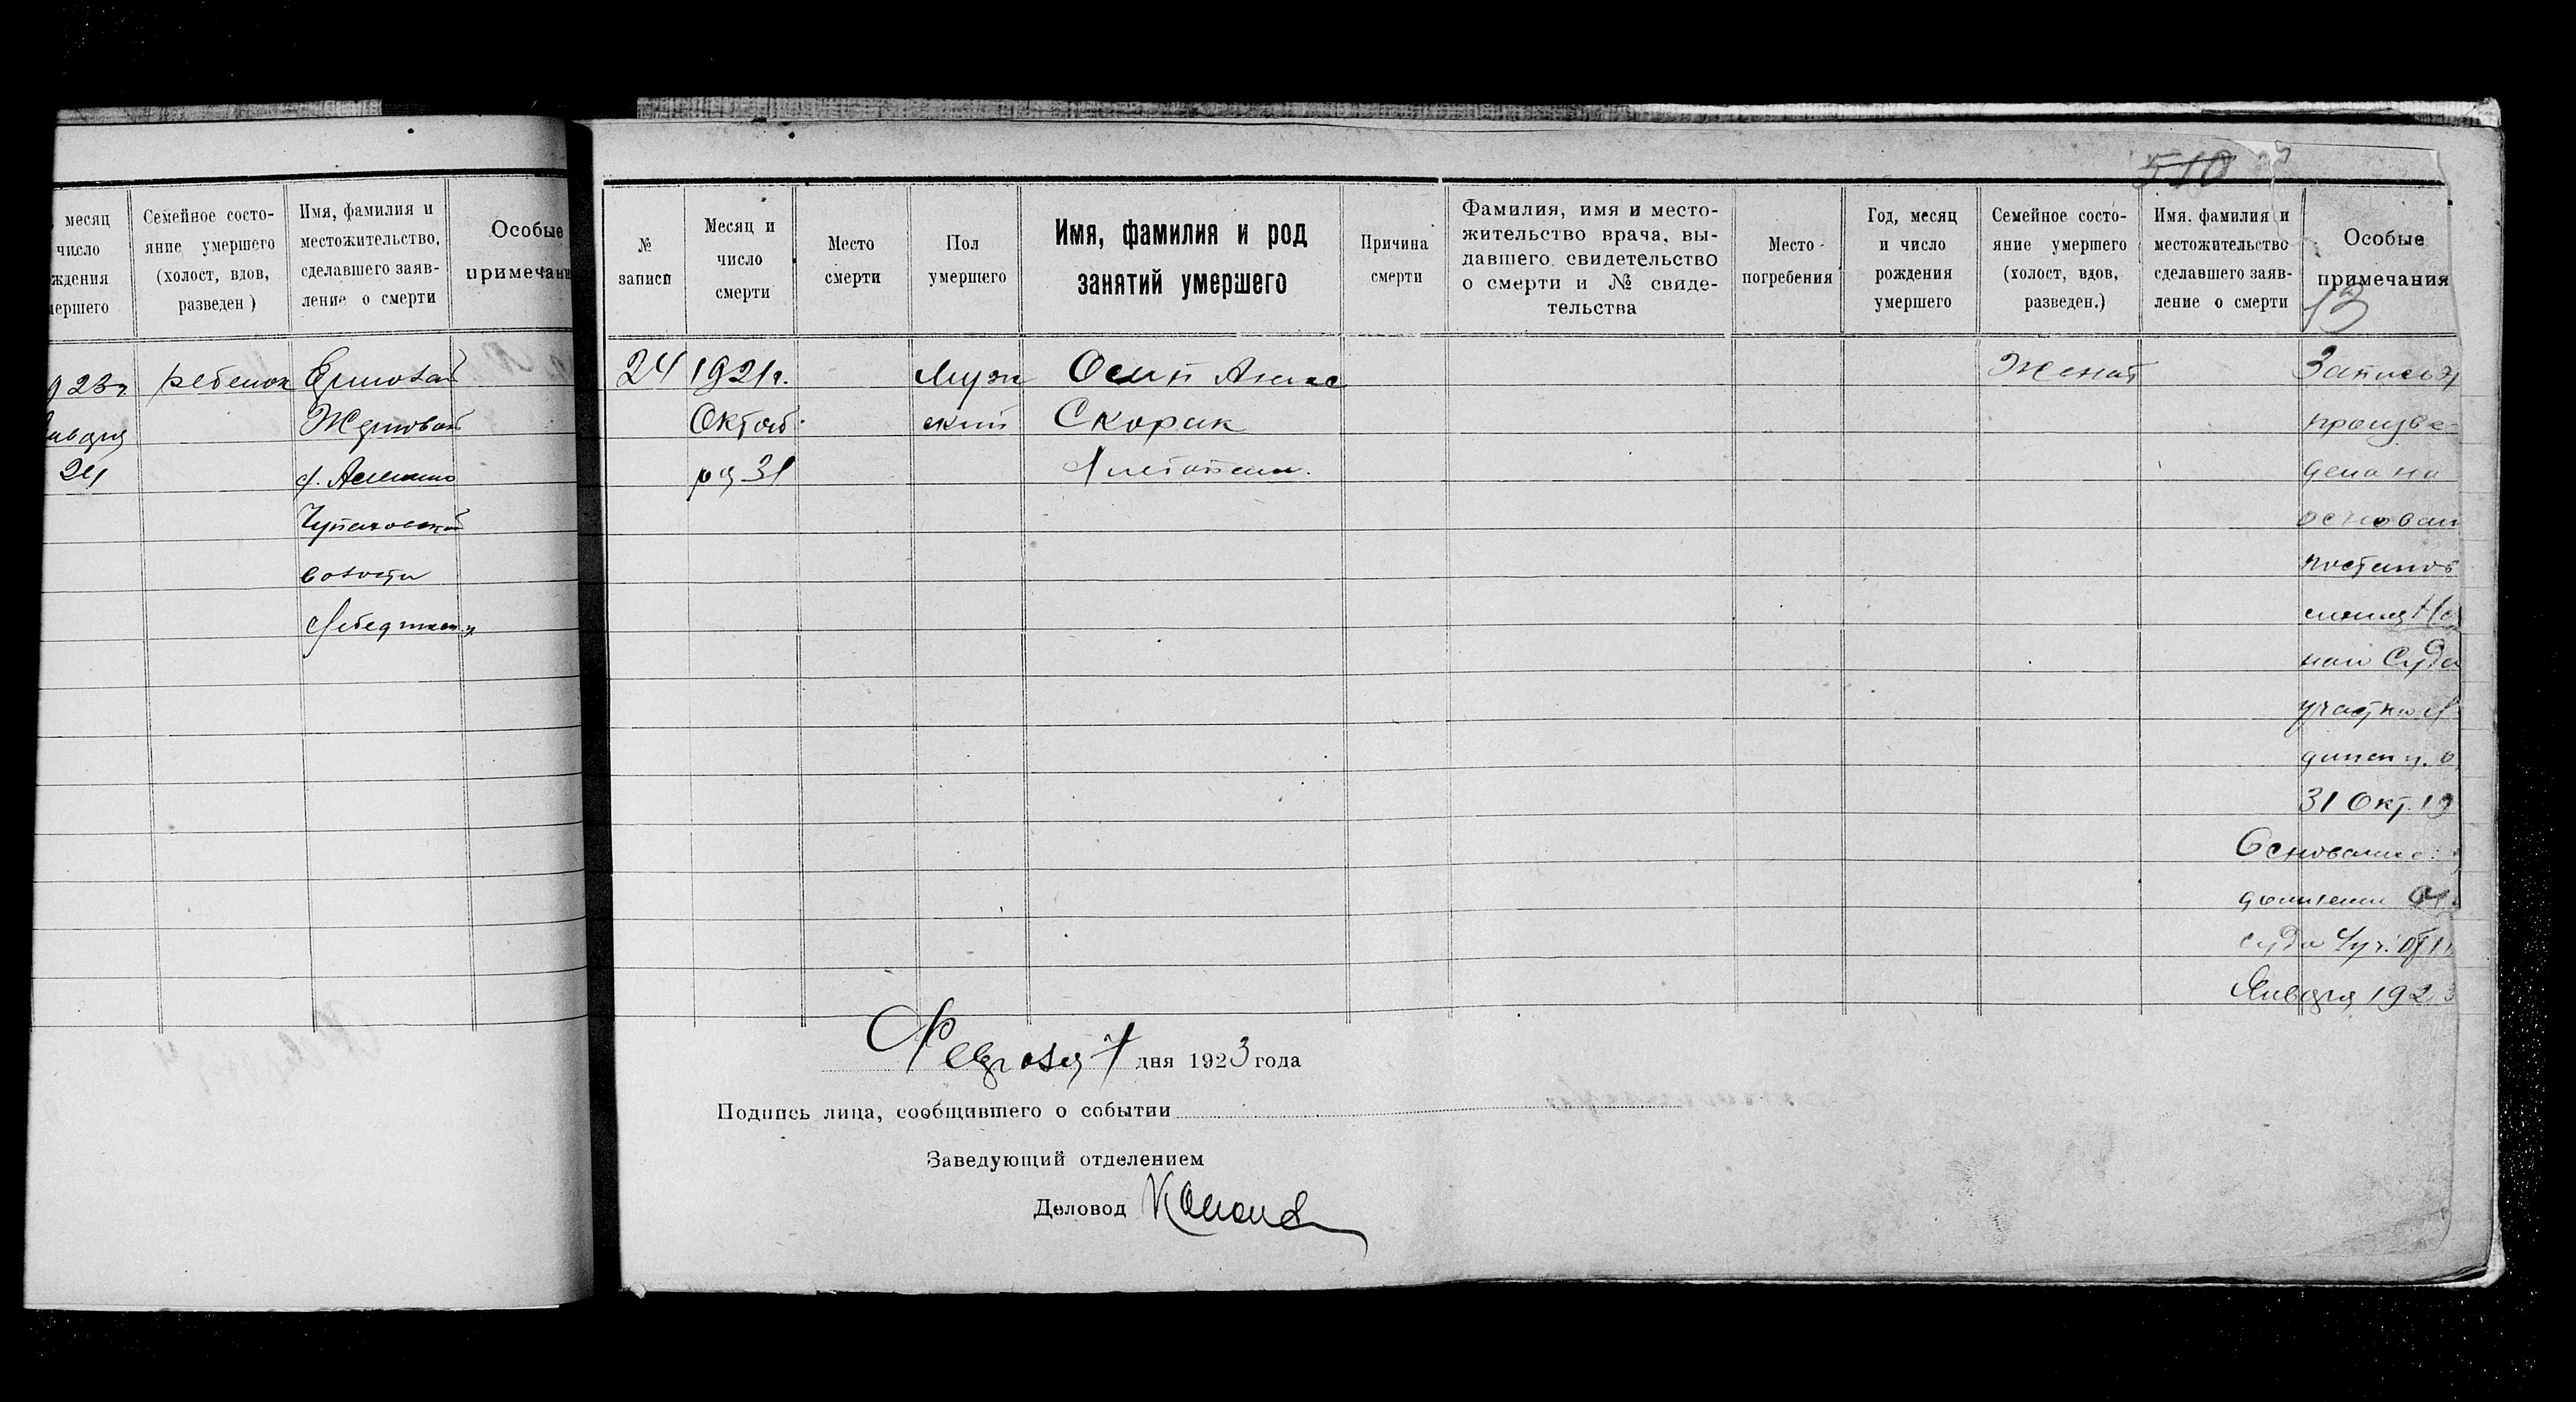 месяц
число
ждения
мершего
Семейное состо-
яние умершего
(холост, вдов,
разведен)
Имя, фамилия и
местожительство,
сделавшего заяв-
ление о смерти
Особые
примечани
923г
января
24
ребенок
д.
Чупаховской
волости
510
№
записи
Месяц и
число
смерти
Место
смерти
Пол
умершего
Имя, фамилия и род
занятий умершего
Причина
смерти
Фамилия, имя и место-
жительство врача, вы-
давшего свидетельство
о смерти и № свиде-
тельства
Место
погребения
Год, месяц
и число
рождения
умершего
Семейное состо-
яние умершего
(холост, вдов,
разведен.)
Имя. фамилия и
местожительство
сделавшего заяв-
ление о смерти
Особые
примечания
13
24
1921г.
Октяб
ря 31
Муж
ский
Осип
Скорик
Женат
Запись
произве-
дена на
основан
постанов
ления
Суда
участка
31 Окт. 19
Основание:
суда
Января 1923
Февраля 7 дня 1923 года
Подпись лица, сообщившего о событии
Заведующий отделением
Деловод